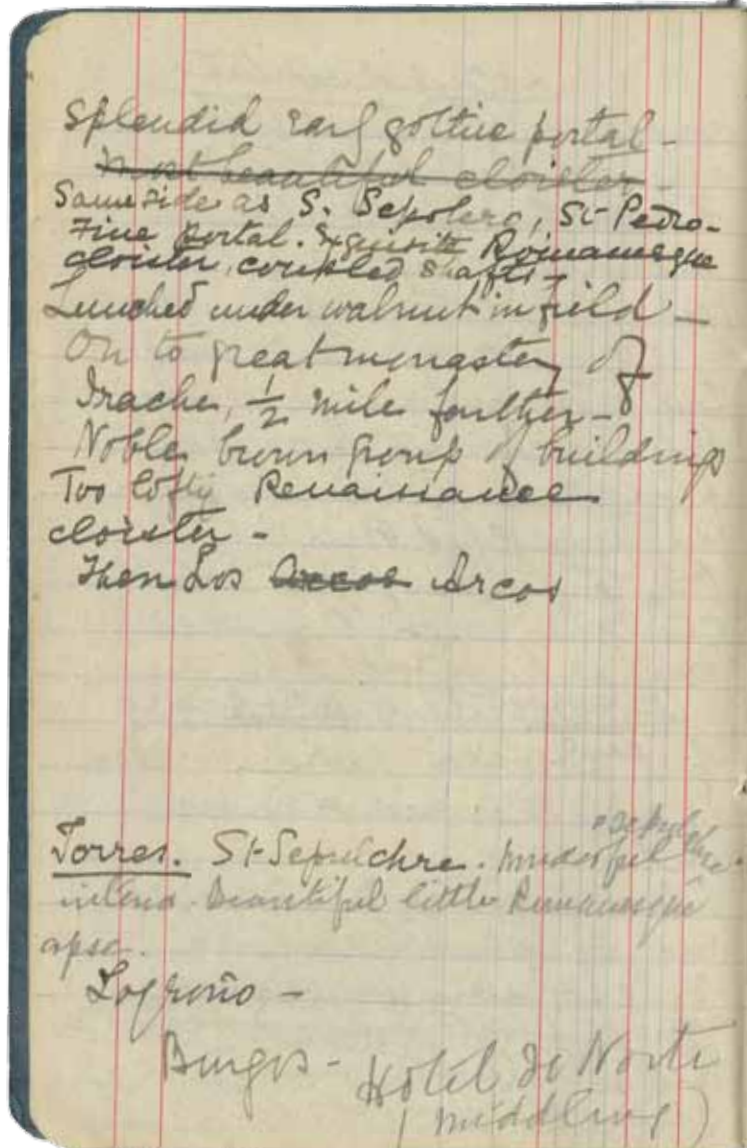 Splendid early gothic portal -
Most beautiful cloister -
Same side as S. Sepolcro, St Pedro -
Fine portal. Exquisite Romanesque
cloister, coupled shafts -
Lunched under walnut in field -
On to great monastery of
Irache, ½ mile further -
Noble brown group of buildings
Too lofty Renaissance
cloister -
Then Los Arcos
Torres. St Sepulchre.
Beautiful little Romanesque
apse.
Logroño -
Burgos - Hotel do Norte
(middling)